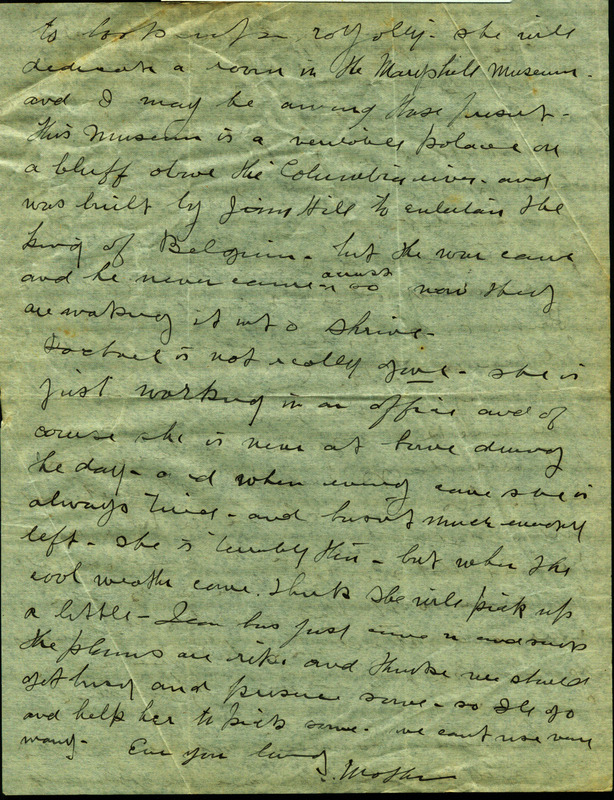 to look up royally. she will
dedicate a room in the Maryhill Museum.
and I may be among those present -
This Museum is a veritable palace on
a bluff above the Columbia river - and
was built by Jim Hill to entertain the
King of Belgium - but the war came
and he never came across so now they
are making it into a shrine -
is not really gone - she is
just working in an office and of
course she is never at home during
the day - and when evening come she is
always tired - and hasn't much energy
left - she is terribly thin - but when the
cool weather come I think she will pick up
a little - Jean has just come in and says
the plums are ripe and thinks we should
get busy and preserve some - so Ill go
and help her to pick some - we cant use very
many - Ever your loving
Mother